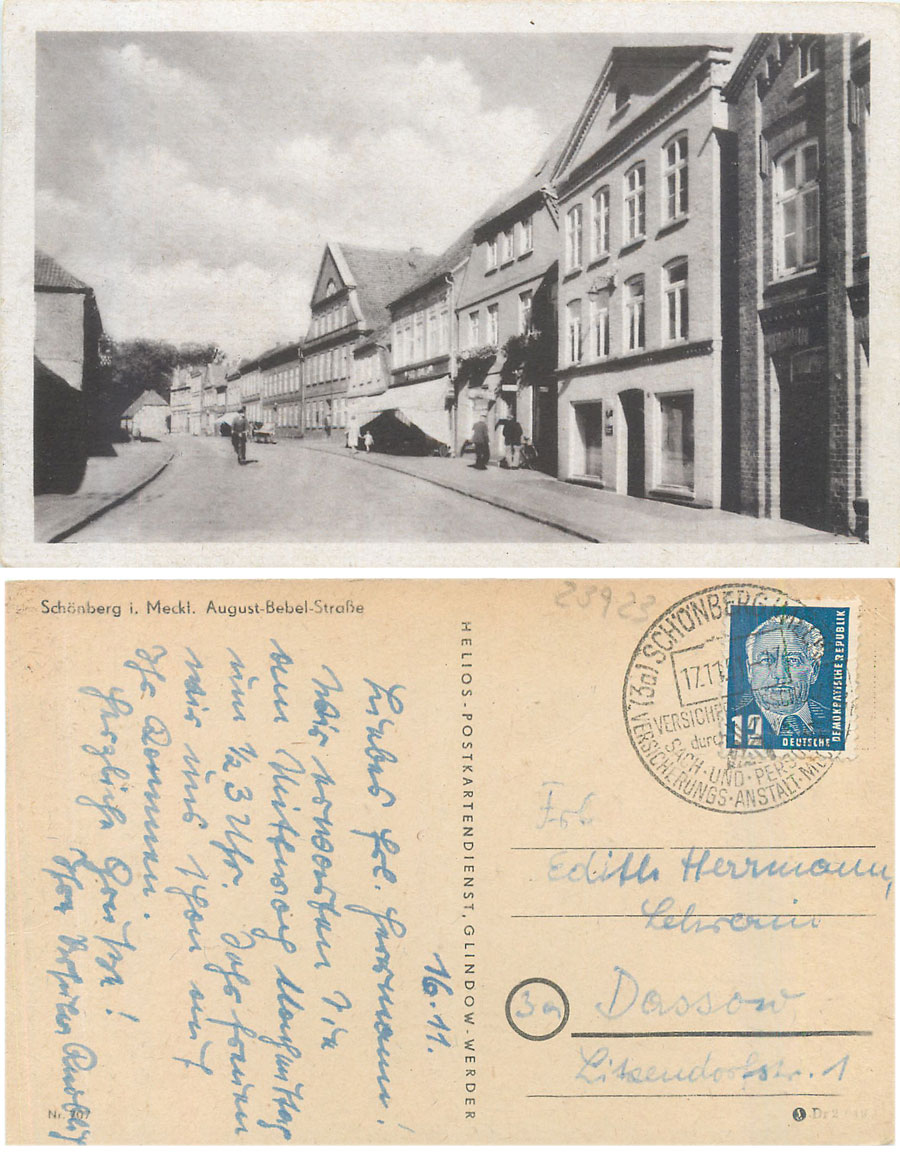 Schönberg i. Meckl. August-Bebel-Straße
16.11.
Liebes Frl. Herrmann!
Wir erwarten Sie
am Mittwoch Nachmittag
um ½ 3 Uhr. Sehr freuen
wir uns schon auf
Ihr Kommen.
Herzliche Grüße!
Ihre
Nr. 907
HELIOS-POSTKARTENDIENST, GLINDOW-WERDER
23923
(3a) SCHÖNBERG
17.11
VERSICHE
durch
SACH-UND-PERSO
VERSICHERUNGS-ANSTALT
12
DEUTSCHE
DEMOKRATISCHE REPUBLIK
Frl.
Edith Herrmann,
Lehrerin
3a Dassow
Litzendorfstr. 1